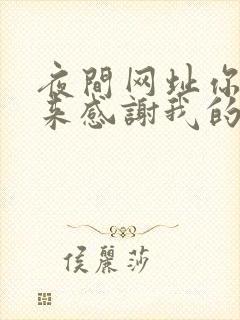 夜間网址你
来感謝我的
侯麗莎